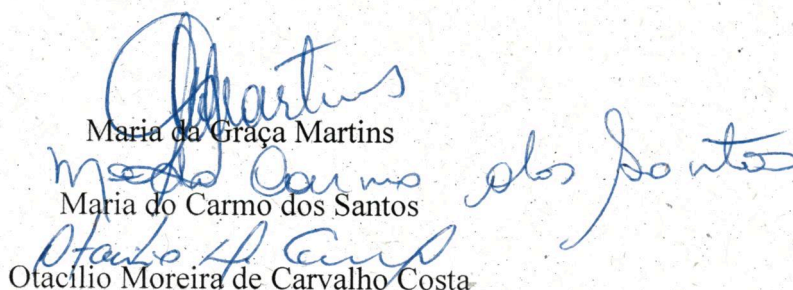 Martins
Maria da Graça Martins
do Carmo dos Santos
Maria do Carmo dos Santos
Otacilio
Otacílio Moreira de Carvalho Costa